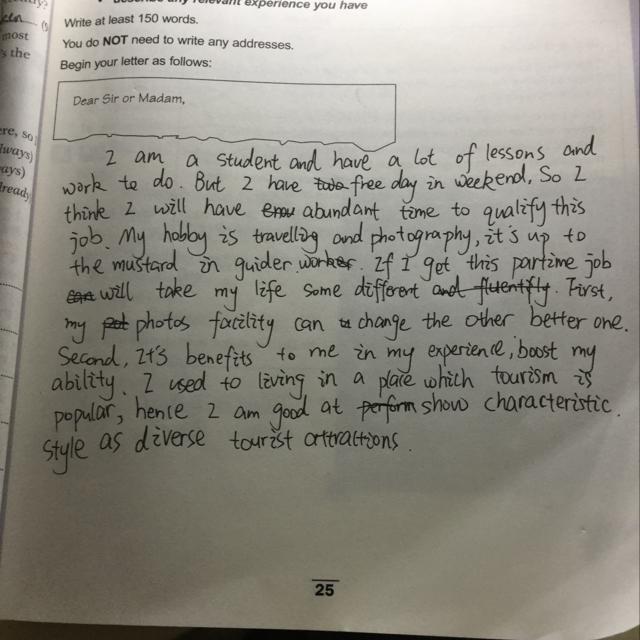 Write at least 150 words.
You do NOT need to write any addresses.
Begin your letter as follows:
Dear Sir or Madam,
I am a student and have a lot of lessons and
work to do. But I have free day in weekend, So I
think I will have abundant time to qualify this
job. My hobby is travelling and photography, it's up to
the mustard in guider worker. If I get this partime job
will take my life some different and fluently. First,
my photos facility can change the other better one.
Second, It's benefits to me in my experience, boost my
ability. I used to living in a place which tourism is
popular, hence I am good at show characteristic.
style as diverse tourist attractions.
25